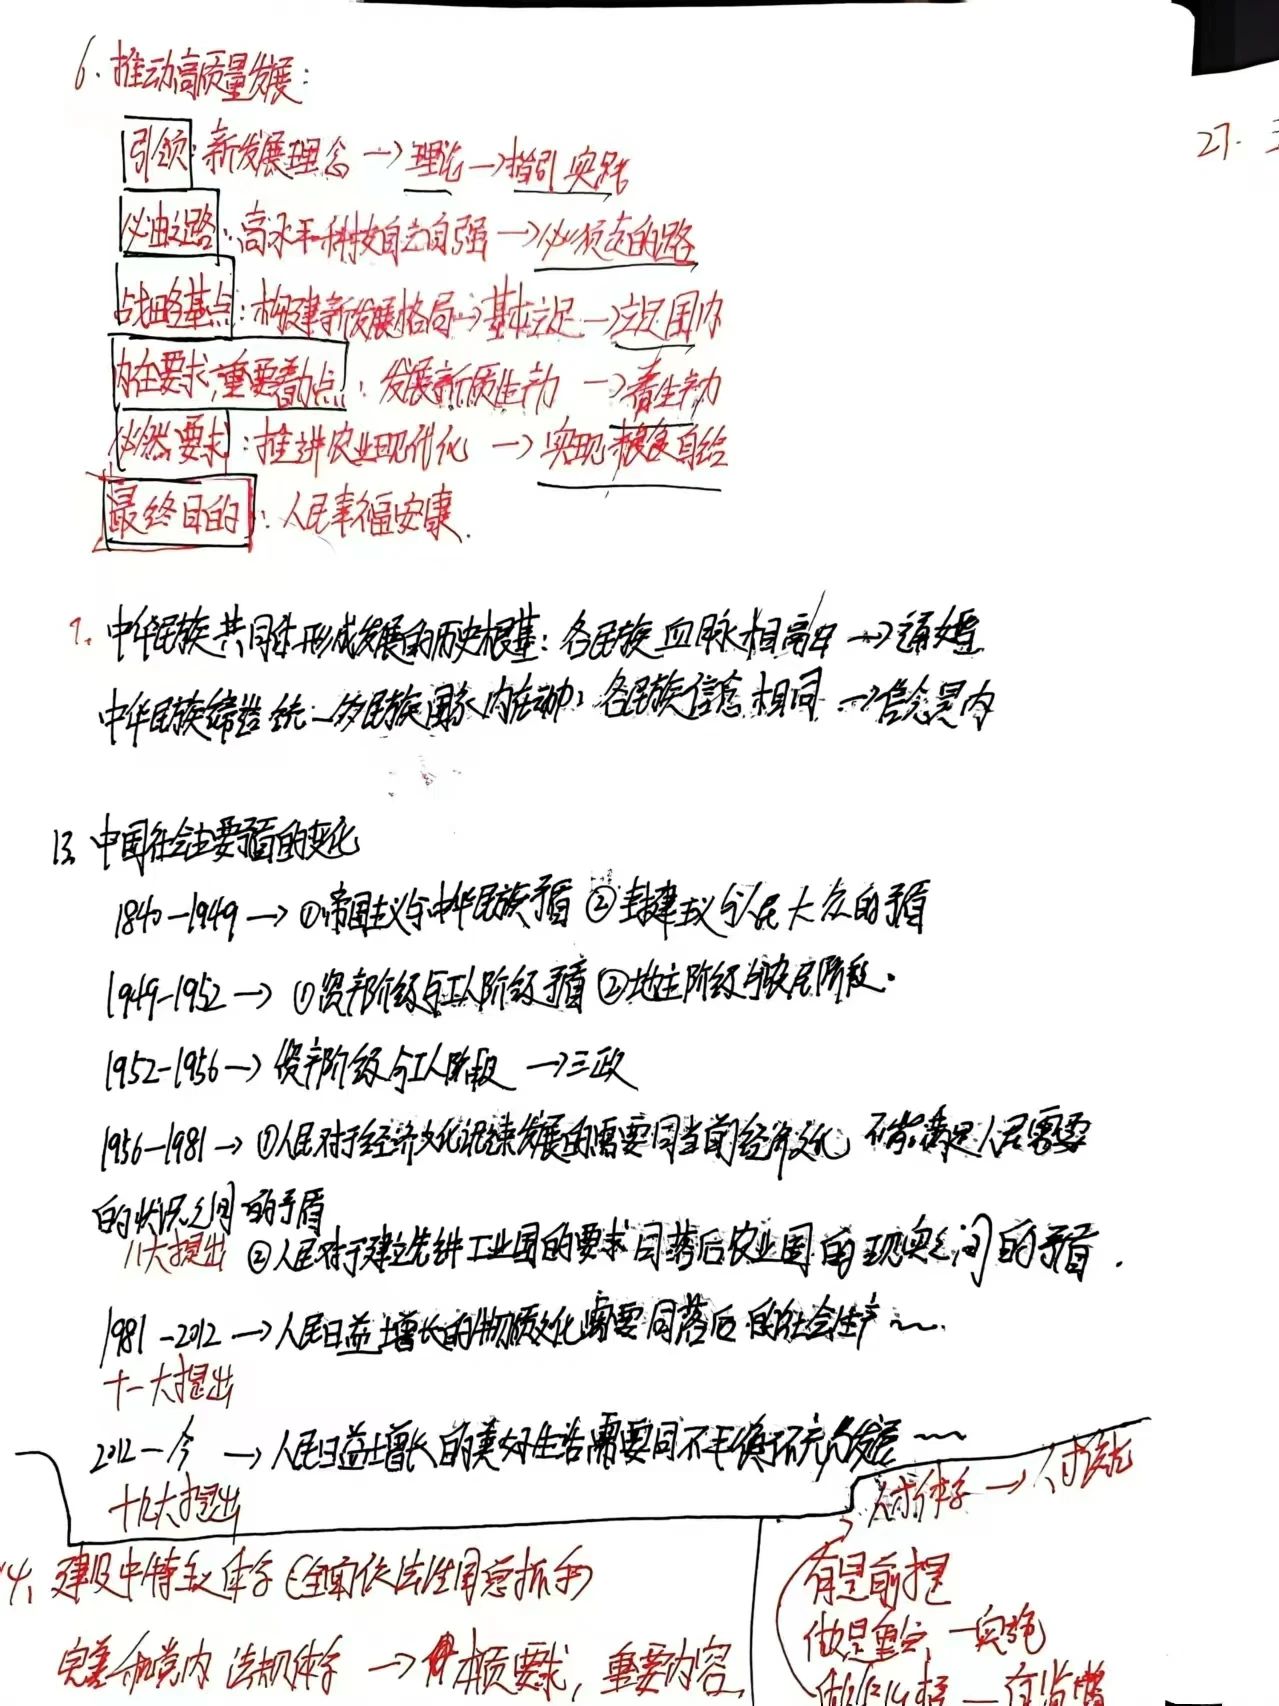 6. 推动高质量发展:
27.
引领: 新发展理念 → 理论 → 指引实践
必由之路: 高水平科技自立自强 → 必须走的路
战略基点: 构建新发展格局 → 基本立足 → 立足国内
内在要求,重要着力点: 发展新质生产力 → 看生产力
必然要求: 推进农业现代化 → 实现粮食自给
最终目的: 人民幸福安康.
7. 中华民族共同体形成发展的历史根基: 各民族血脉相融 → 通婚
中华民族缔造统一多民族国家内在动力: 各民族信念相同 → 信念是内
13. 中国社会主要矛盾的变化
1840-1949 → ①帝国主义与中华民族矛盾 ②封建主义与人民大众的矛盾
1949-1952 → ①资产阶级与工人阶级矛盾 ②地主阶级与农民阶段.
1952-1956 → 资产阶级与工人阶段 → 三改
1956-1981 → ①人民对于经济文化迅速发展的需要同当前经济文化不能满足人民需要
的状况之间的矛盾
八大提出 ②人民对于建立先进工业国的要求同落后农业国的现实之间的矛盾.
1981-2012 → 人民日益增长的物质文化需要同落后的社会生产~~.
十一大提出
2012-今 → 人民日益增长的美好生活需要同不平衡不充分发展~~
十九大提出
法体系 →
14. 建设中特法体系(全面依法治国总抓手)
完善和党内法规体系 → 本质要求, 重要内容.
有是前提
做是重点, - 实施